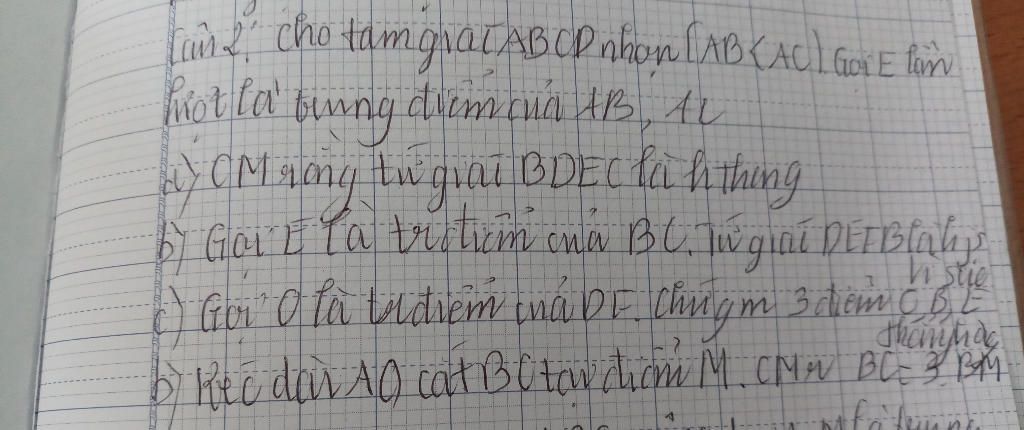 cho tam giác ABCD nhọn [AB<AC] Gọi E lần
lượt là trung điểm của AB, AC
a) CM rằng tứ giác BDEC là h thang
b) Gọi E là tr điểm của BC. Tứ giác DEEB là h
vì sao
c) Gọi O là tr điểm của DE. Chứng m 3 điểm C, B, E
thẳng hàng
D) AO cắt BC tại điểm M. CM BC = 3 BM